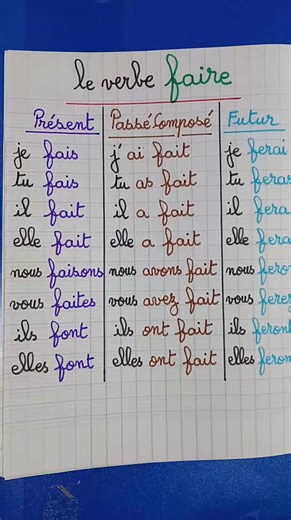 le verbe faire
Présent Passé Composé Futur
je fais j'ai fait je ferai
tu fais tu as fait tu feras
il fait il a fait il fera
elle fait elle a fait elle fera
nous faisons nous avons fait nous feron
vous faites vous avez fait vous ferez
ils font ils ont fait ils feront
elles font elles ont fait elles feron